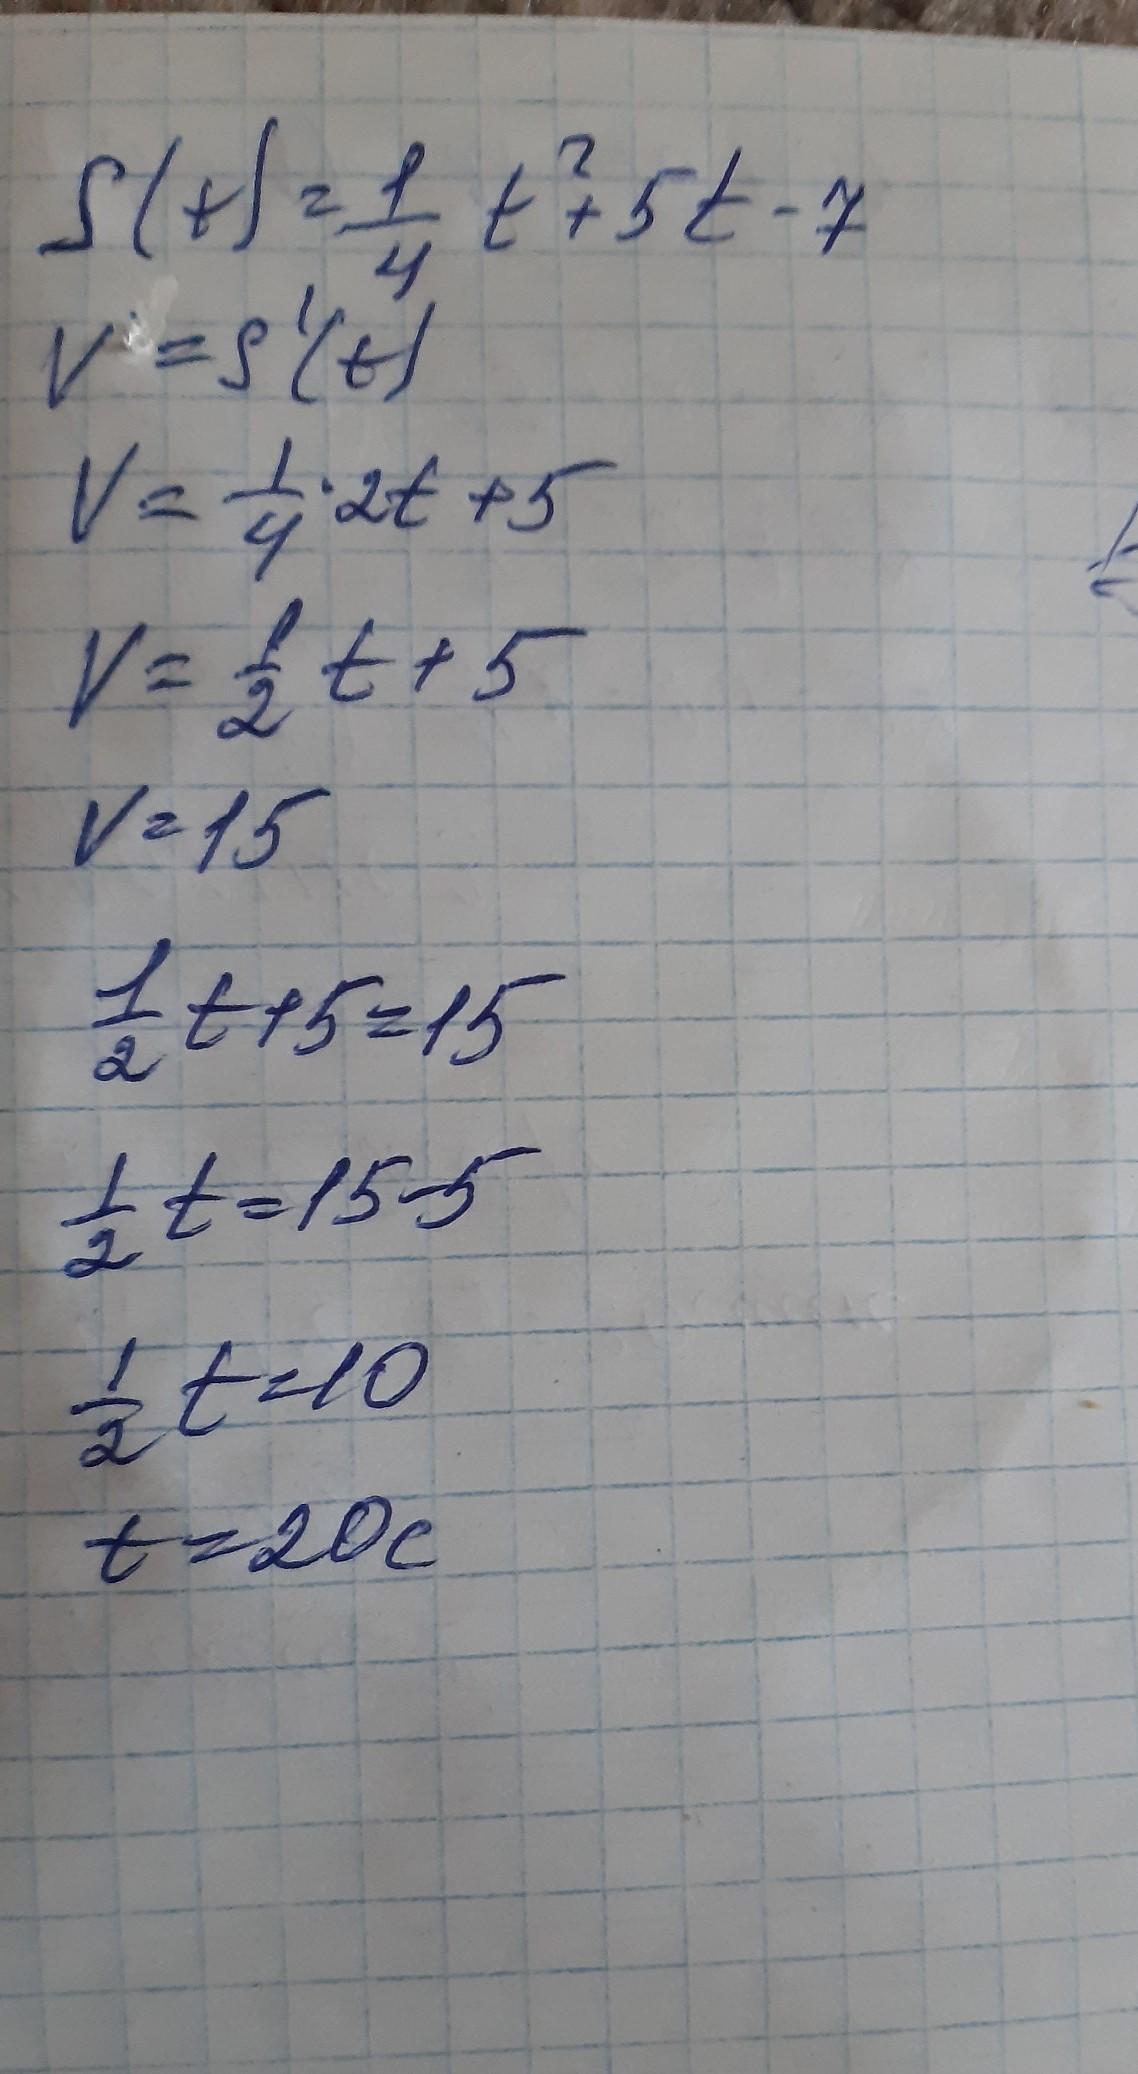 S(t)=1/4 t²+5t-7
V=S'(t)
V=1/4·2t+5
V=1/2 t+5
V=15
1/2 t+5=15
1/2 t=15-5
1/2 t=10
t=20c